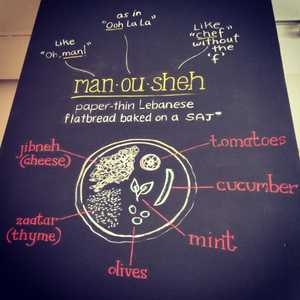 Like
"Oh, man!"
as in
"Ooh La La"
Like,
"chef
without
the
'f'
man·ou·sheh
paper-thin Lebanese
flatbread baked on a SAJ*
jibneh
(cheese)
tomatoes
cucumber
zaatar
(thyme)
mint
olives